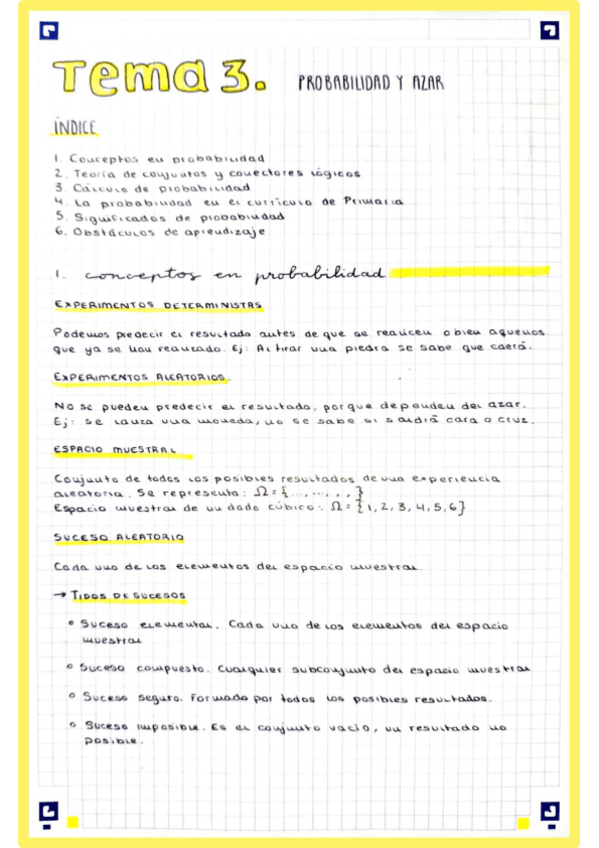 Tema 3. PROBABILIDAD Y AZAR
ÍNDICE
1. Conceptos en probabilidad
2. Teoría de conjuntos y conectores lógicos
3. Cálculo de probabilidad
4. La probabilidad en el currículo de Primaria
5. Significados de probabilidad
6. Obstáculos de aprendizaje
1. conceptos en probabilidad
EXPERIMENTOS DETERMINISTAS
Podemos predecir el resultado antes de que se realicen o bien aquellos
que ya se han realizado. Ej: Al tirar una piedra se sabe que caerá.
EXPERIMENTOS ALEATORIOS.
No se pueden predecir el resultado, porque dependen del azar.
Ej: se lanza una moneda, no se sabe si saldrá cara o cruz.
ESPACIO MUESTRAL
Conjunto de todos los posibles resultados de una experiencia
aleatoria. Se representa: Ω = {..., ..., , , }
Espacio muestral de un dado cúbico: Ω = {1, 2, 3, 4, 5, 6}
SUCESO ALEATORIO
Cada uno de los elementos del espacio muestral.
→ TIPOS DE SUCESOS
• Suceso elemental. Cada uno de los elementos del espacio
muestral
• Suceso compuesto. Cualquier subconjunto del espacio muestral
• Suceso seguro. Formado por todos los posibles resultados.
• Suceso imposible. Es el conjunto vacío, un resultado no
posible.